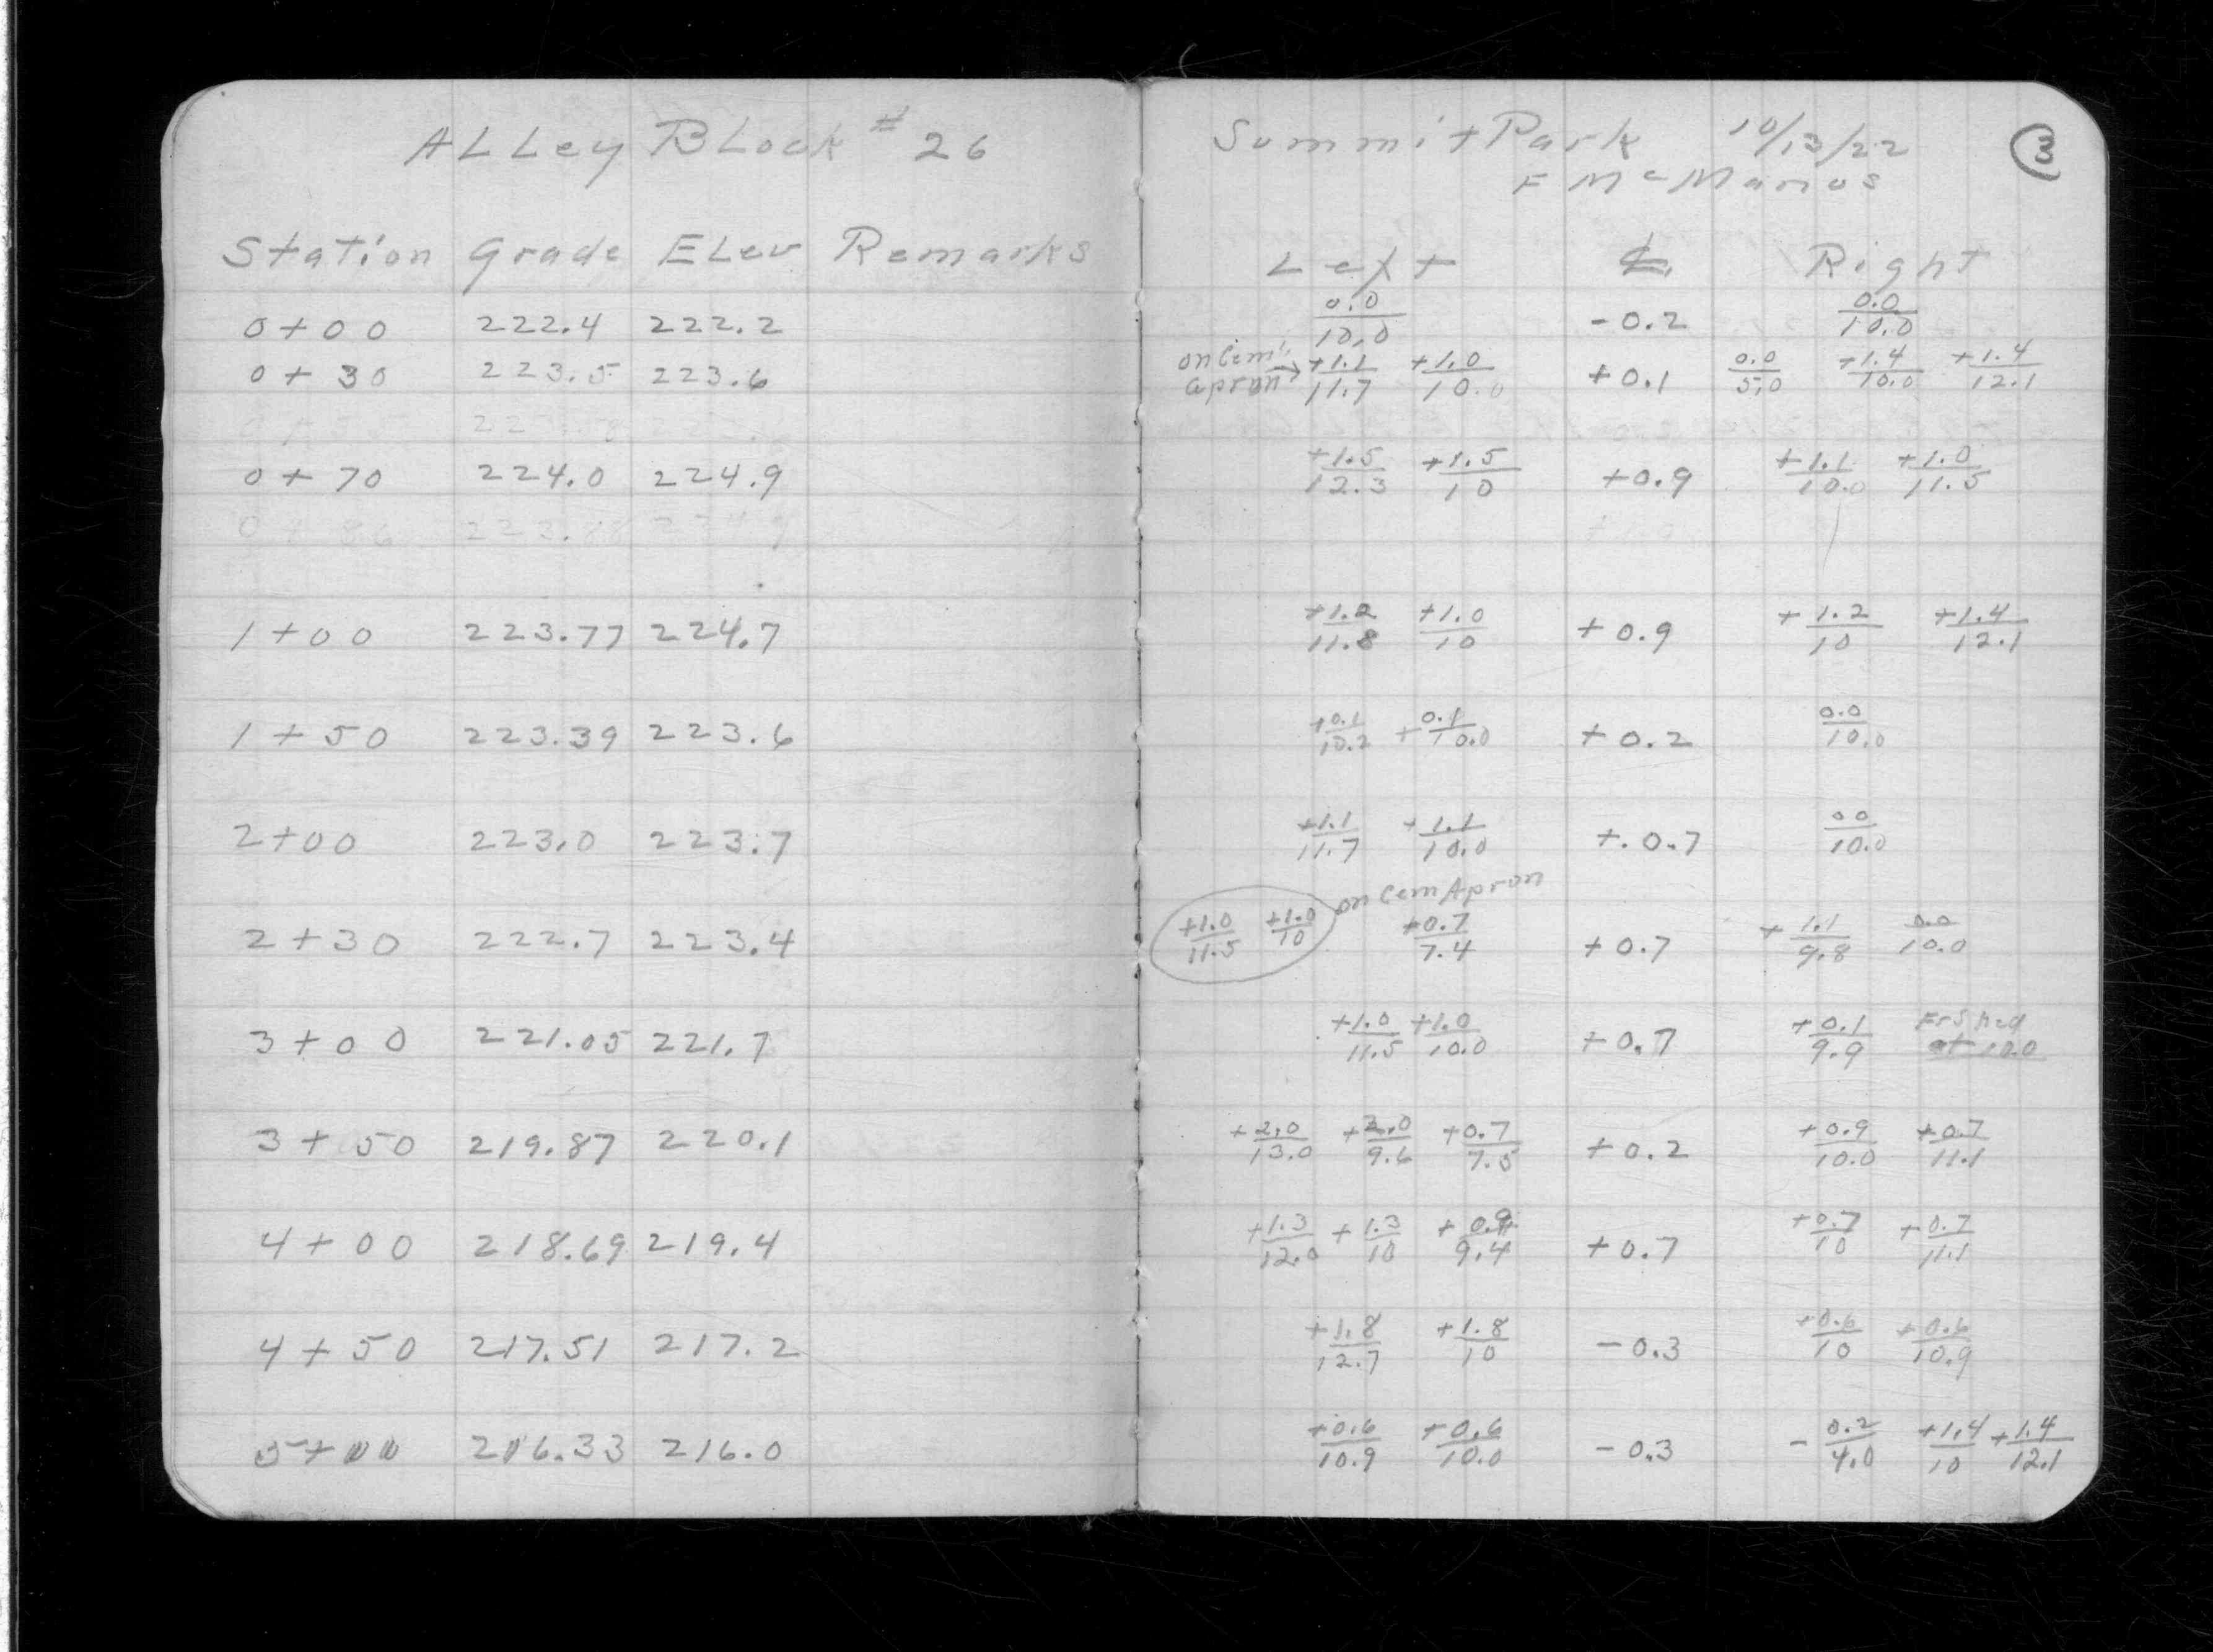 ALLey BLock # 26
Station Grade ELev Remarks
0+00 222.4 222.2
0+30 223.5 223.6
0+70 224.0 224.9
0+86 223.88
1+00 223.77 224.7
1+50 223.39 223.6
2+00 223.0 223.7
2+30 222.7 223.4
3+00 221.05 221.7
3+50 219.87 220.1
4+00 218.69 219.4
4+50 217.51 217.2
5+00 216.33 216.0
Summit Park 10/13/22 3
F McManus
Left ℄ Right
0.0/10.0 -0.2 0.0/10.0
on Cem. apron → +1.1/11.7 +1.0/10.0 +0.1 0.0/5.0 +1.4/10.0 +1.4/12.1
+1.5/12.3 +1.5/10 +0.9 +1.1/10.0 +1.0/11.5
+1.2/11.8 +1.0/10 +0.9 +1.2/10 +1.4/12.1
+0.1/10.2 +0.1/10.0 +0.2 0.0/10.0
+1.1/11.7 +1.1/10.0 +.0.7 00/10.0
on Cem Apron
+1.0/11.5 +1.0/10 +0.7/7.4 +0.7 +1.1/9.8 0.0/10.0
+1.0/11.5 +1.0/10.0 +0.7 +0.1/9.9 Fr Shed at 10.0
+2.0/13.0 +2.0/9.6 +0.7/7.5 +0.2 +0.9/10.0 +0.7/11.1
+1.3/12.0 +1.3/10 +0.9/9.4 +0.7 +0.7/10 +0.7/11.1
+1.8/12.7 +1.8/10 -0.3 +0.6/10 +0.6/10.9
+0.6/10.9 +0.6/10.0 -0.3 -0.2/4.0 +1.4/10 +1.4/12.1